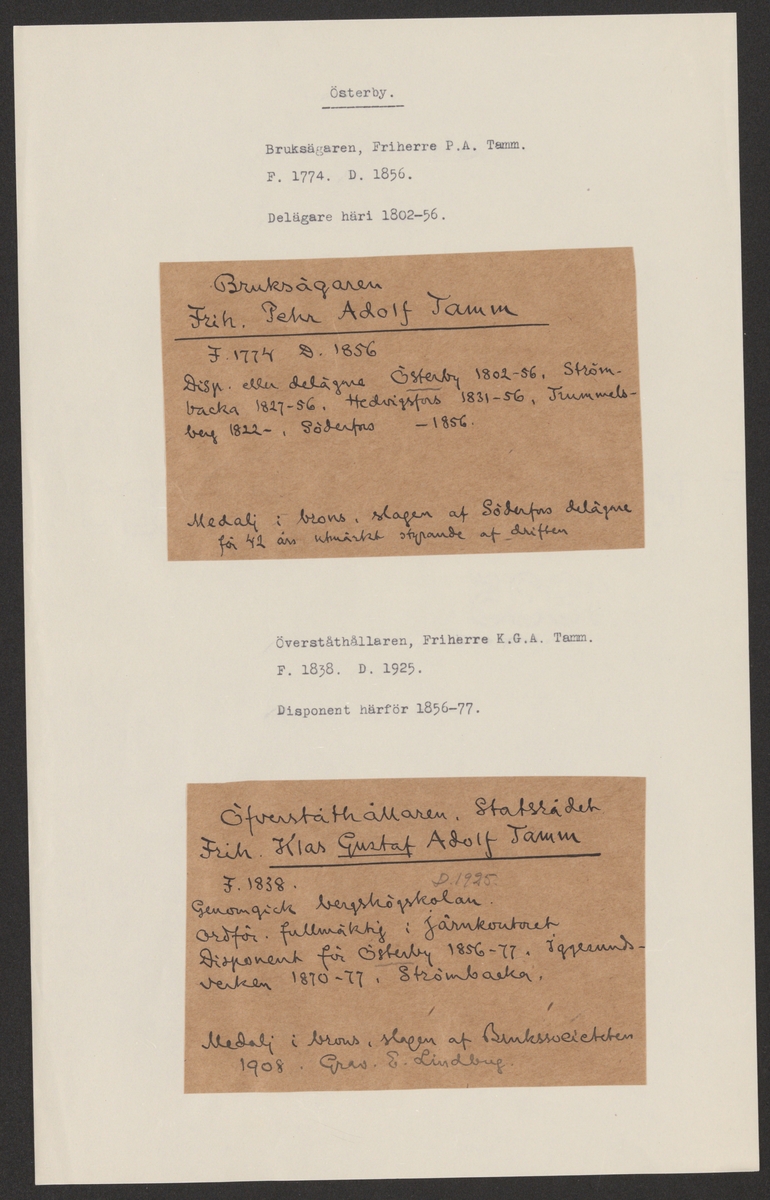 Österby.
Bruksägaren, Friherre P.A. Tamm.
F. 1774. D. 1856.
Delägare häri 1802-56.
Bruksägaren
Frih. Pehr Adolf Tamm
F. 1774 D. 1856
Disp. eller delägare Österby 1802-56, Ström-
backa 1827-56, Hedvigsfors 1831-56, Trummels-
berg 1822- , Söderfors -1856.
Medalj i brons, slagen af Söderfors delägare
för 42 års utmärkt styrande af driften
Överståthållaren, Friherre K.G.A. Tamm.
F. 1838. D. 1925.
Disponent härför 1856-77.
Öfverståthållaren, Statsrådet
Frih. Klas Gustaf Adolf Tamm
F. 1838. D. 1925.
Genomgick bergshögskolan.
Ordför. fullmäktig i Järnkontoret
Disponent för Österby 1856-77, Iggesunds-
verken 1870-77, Strömbacka.
Medalj i brons, slagen af Brukssocieteten
1908. Grav. E. Lindberg.